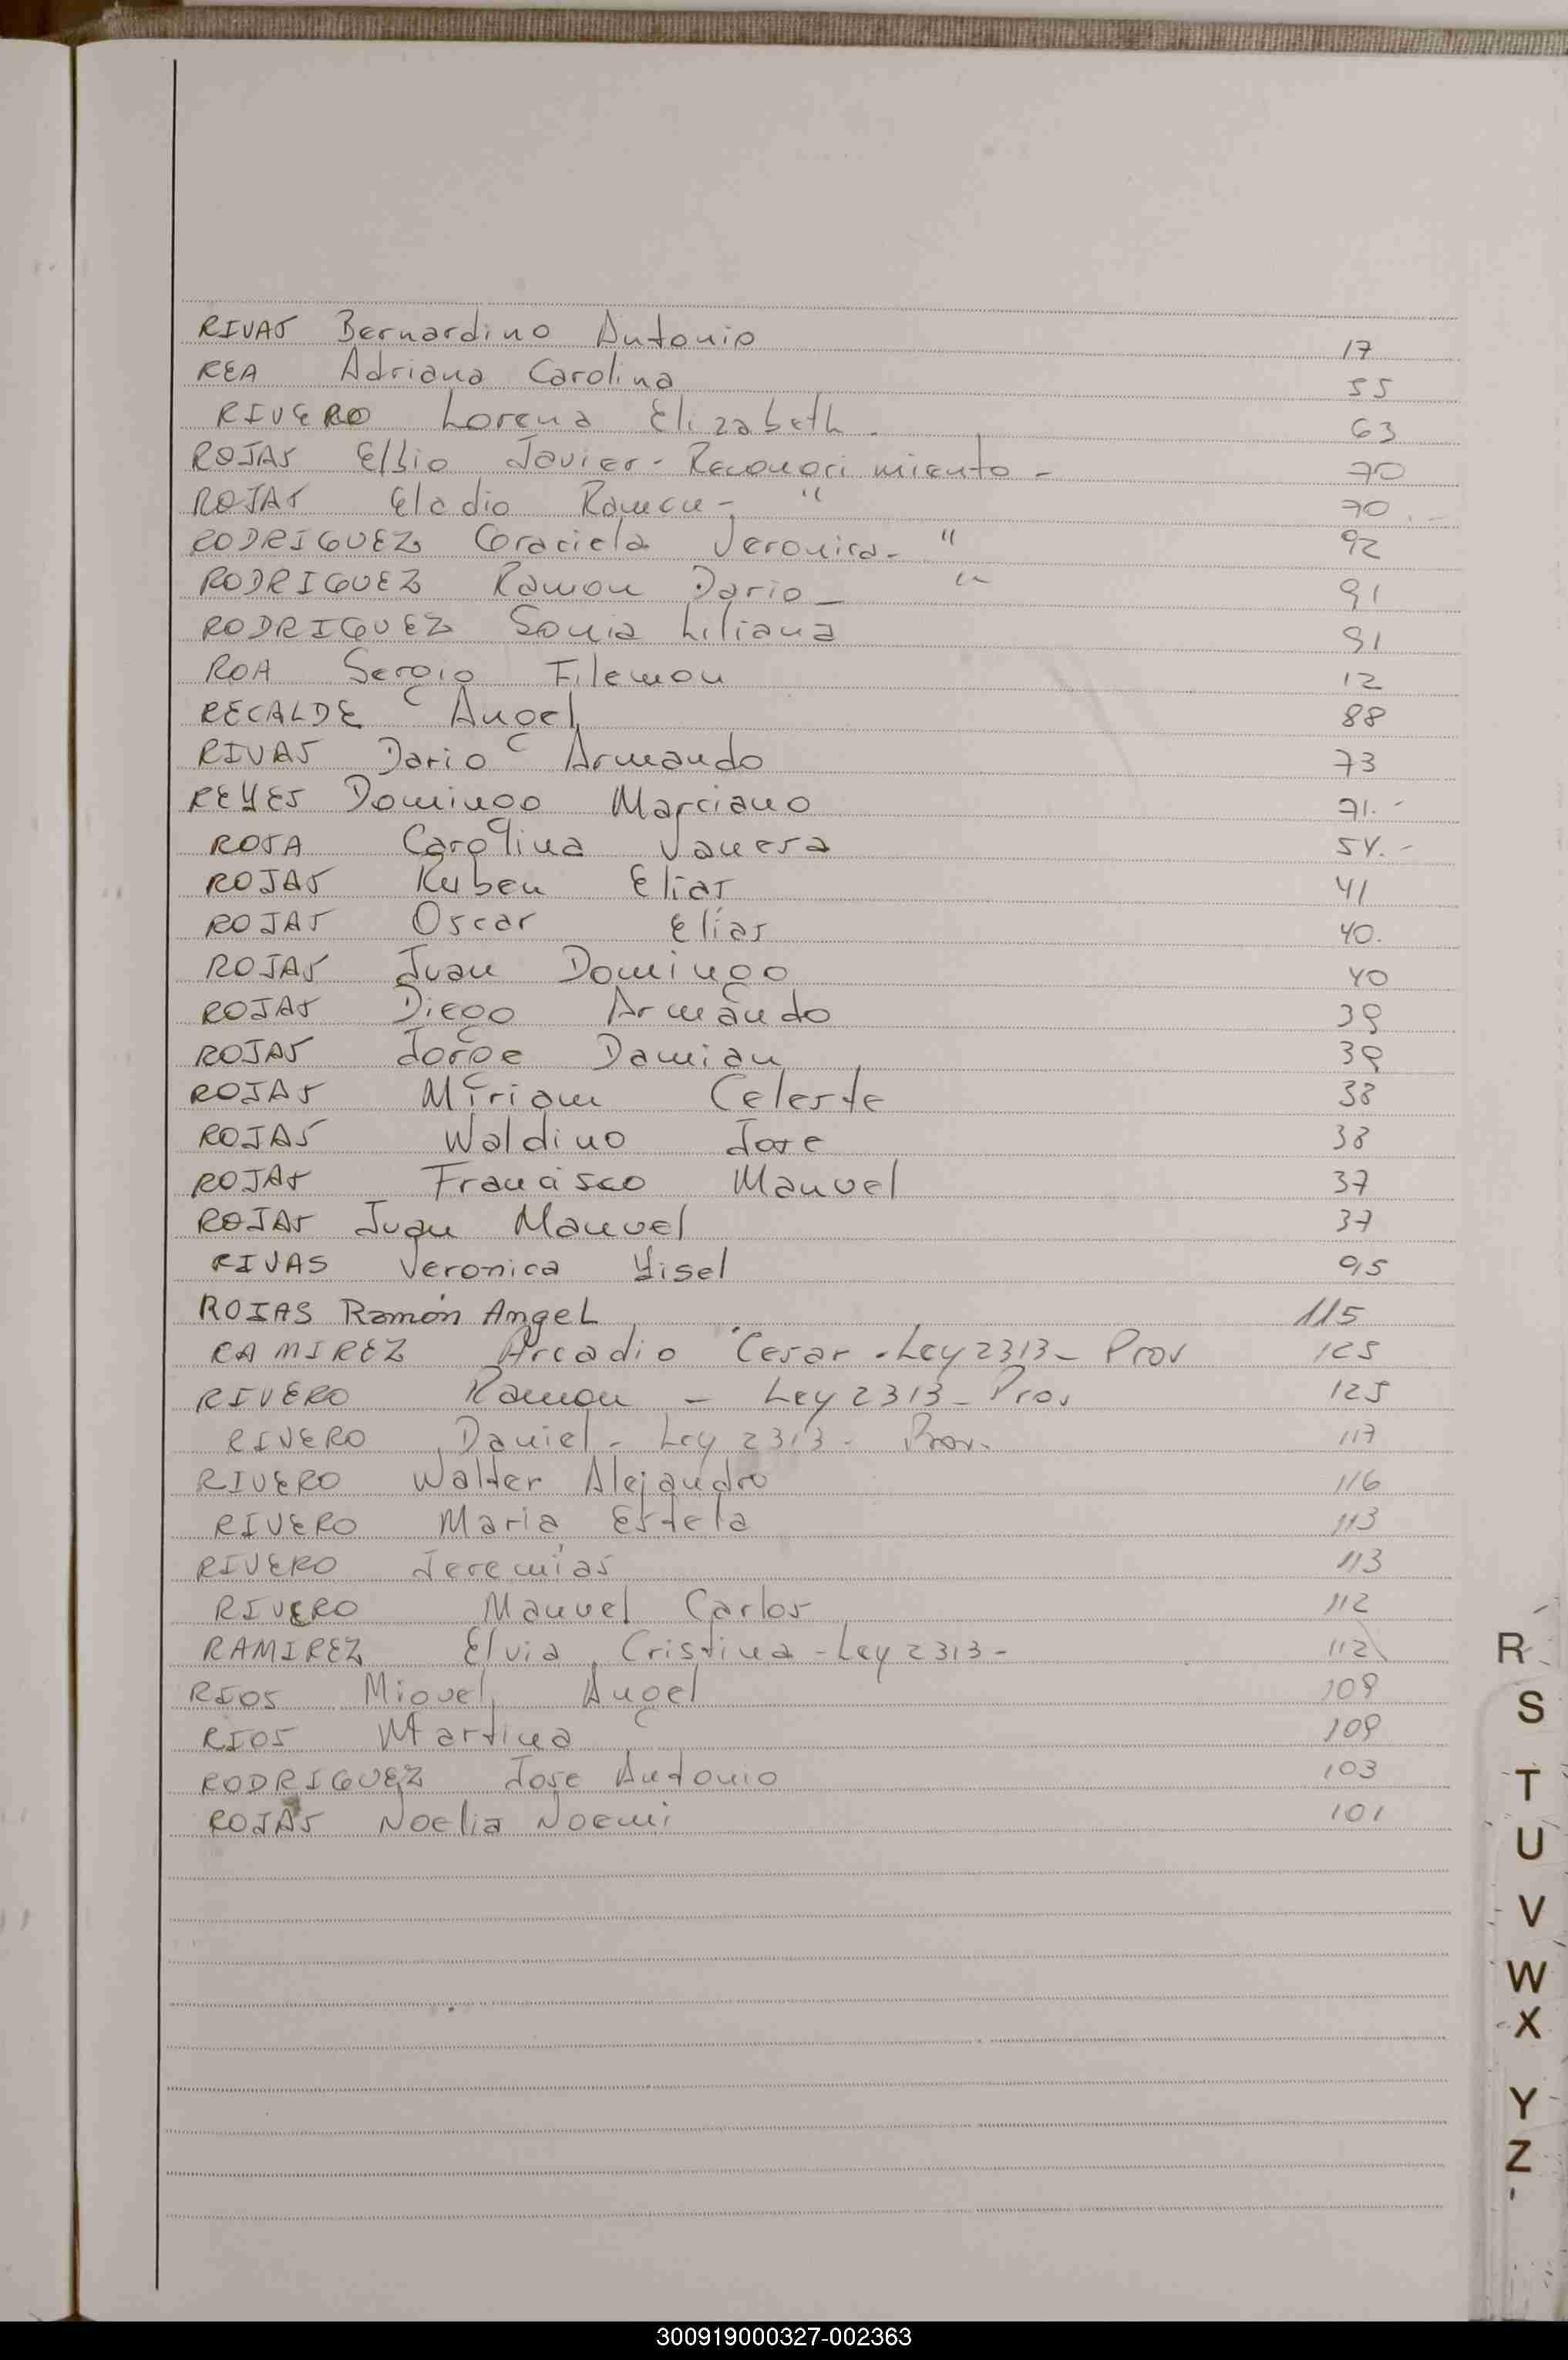 RIVAS Bernardino Antonio 17
REA Adriana Carolina 55
RIVERO Lorena Elizabeth. 63
ROJAS Elbio Javier - Reconocimiento - 70
ROJAS Eladio Ramon - " 70
RODRIGUEZ Graciela Veronica - " 92
RODRIGUEZ Ramon Dario - " 91
RODRIGUEZ Sonia Liliana 91
ROA Sergio Filemon 12
RECALDE Angel 88
RIVAS Dario Armando 73
REYES Domingo Marciano 71.-
ROJA Carolina Vanesa 54.-
ROJAS Ruben Elias 41
ROJAS Oscar Elías 40.
ROJAS Juan Domingo 40
ROJAS Diego Armando 39
ROJAS Jorge Damian 39
ROJAS Miriam Celeste 38
ROJAS Waldino Jose 38
ROJAS Francisco Manuel 37
ROJAS Juan Manuel 37
RIVAS Veronica Yisel 95
ROJAS Ramón Angel 115
RAMIREZ Arcadio Cesar - Ley 2313 - Prov 125
RIVERO Ramon - Ley 2313 - Prov 125
RIVERO Daniel - Ley 2313 - Prov. 117
RIVERO Walter Alejandro 116
RIVERO Maria Estela 113
RIVERO Jeremias 113
RIVERO Manuel Carlos 112
RAMIREZ Elvia Cristina - Ley 2313 - 112
RIOS Miguel Angel 109
RIOS Martina 109
RODRIGUEZ Jose Antonio 103
ROJAS Noelia Noemi 101
R
S
T
U
V
W
X
Y
Z
300919000327-002363